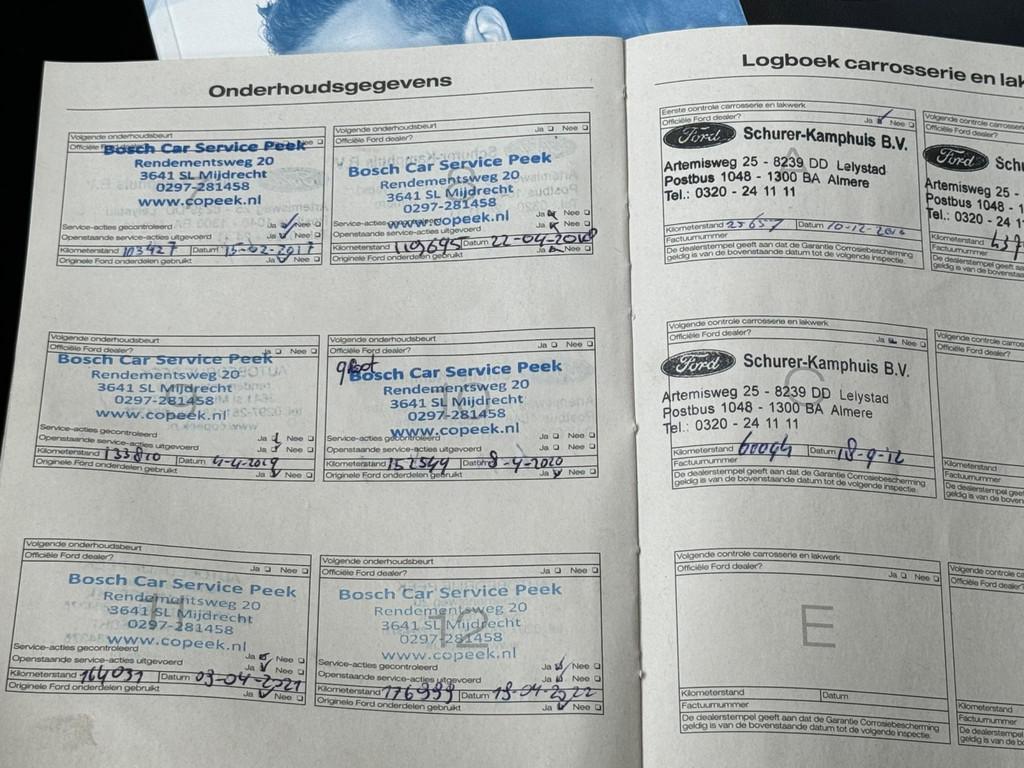 Onderhoudsgegevens
Volgende onderhoudsbeurt
Bosch Car Service Peek
Rendementsweg 20
3641 SL Mijdrecht
0297-281458
www.copeek.nl
Service-acties gecontroleerd Ja Nee
Openstaande service-acties uitgevoerd Ja Nee
Kilometerstand 103427 Datum 15-02-2017
Originele Ford onderdelen gebruikt Ja Nee
Volgende onderhoudsbeurt
Ja Nee
Bosch Car Service Peek
Rendementsweg 20
3641 SL Mijdrecht
0297-281458
www.copeek.nl
Service-acties Ja Nee
Openstaande service-acties uitgevoerd Ja Nee
Kilometerstand 119695 Datum 22-04-2018
Originele Ford onderdelen gebruikt Ja Nee
Volgende onderhoudsbeurt
Officiële Ford dealer? Ja Nee
Bosch Car Service Peek
Rendementsweg 20
3641 SL Mijdrecht
0297-281458
www.copeek.nl
Service-acties gecontroleerd Ja Nee
Openstaande service-acties uitgevoerd Ja Nee
Kilometerstand 133810 Datum 4-4-2019
Originele Ford onderdelen gebruikt Ja Nee
Volgende onderhoudsbeurt
Officiële Ford dealer? Ja Nee
groot
Bosch Car Service Peek
Rendementsweg 20
3641 SL Mijdrecht
0297-281458
www.copeek.nl
Service-acties gecontroleerd Ja Nee
Openstaande service-acties uitgevoerd Ja Nee
Kilometerstand 152544 Datum 8-4-2020
Originele Ford onderdelen gebruikt Ja Nee
Volgende onderhoudsbeurt
Officiële Ford dealer? Ja Nee
11
Bosch Car Service Peek
Rendementsweg 20
3641 SL Mijdrecht
0297-281458
www.copeek.nl
Service-acties gecontroleerd Ja Nee
Openstaande service-acties uitgevoerd Ja Nee
Kilometerstand 164031 Datum 03-04-2021
Originele Ford onderdelen gebruikt Ja Nee
Volgende onderhoudsbeurt
Officiële Ford dealer? Ja Nee
12
Bosch Car Service Peek
Rendementsweg 20
3641 SL Mijdrecht
0297-281458
www.copeek.nl
Service-acties gecontroleerd Ja Nee
Openstaande service-acties uitgevoerd Ja Nee
Kilometerstand 176999 Datum 19-04-2022
Originele Ford onderdelen gebruikt Ja Nee
Logboek carrosserie en lak
Eerste controle carrosserie en lakwerk
Officiële Ford dealer? Ja Nee
A
Ford Schurer-Kamphuis B.V.
Artemisweg 25 - 8239 DD Lelystad
Postbus 1048 - 1300 BA Almere
Tel.: 0320 - 24 11 11
Kilometerstand 23657 Datum 10-12-2010
Factuurnummer
De dealerstempel geeft aan dat de Garantie Corrosiebescherming
geldig is van bovenstaande datum tot de volgende inspectie.
Volgende controle carrosserie
Officiële Ford dealer?
Ford Schu
Artemisweg 25
Postbus 1048 - 1
Tel.: 0320 - 24 1
Kilometerstand
Factuurnummer
De dealerstempel geeft aan
geldig is van bovenst
Volgende controle carrosserie en lakwerk
Officiële Ford dealer? Ja Nee
C
Ford Schurer-Kamphuis B.V.
Artemisweg 25 - 8239 DD Lelystad
Postbus 1048 - 1300 BA Almere
Tel.: 0320 - 24 11 11
Kilometerstand 60094 Datum 18-9-12
Factuurnummer
De dealerstempel geeft aan dat de Garantie Corrosiebescherming
geldig is van bovenstaande datum tot de volgende inspectie.
Volgende controle ca
Officiële Ford dealer?
Kilometerstand
Factuurnummer
De dealerstempel geef
geldig is van boven
Volgende controle carrosserie en lakwerk
Officiële Ford dealer? Ja Nee
E
Kilometerstand Datum
Factuurnummer
De dealerstempel geeft aan dat de Garantie Corrosiebescherming
geldig is van bovenstaande datum tot de volgende inspectie.
Volgende controle ca
Officiële Ford dealer
Kilometerstand
Factuurnummer
De dealerstem
geldig is van b